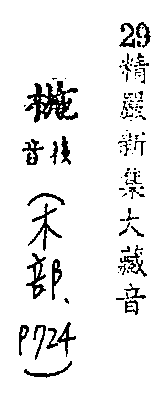 29精嚴新集大藏音
音接
(木部、
P724)